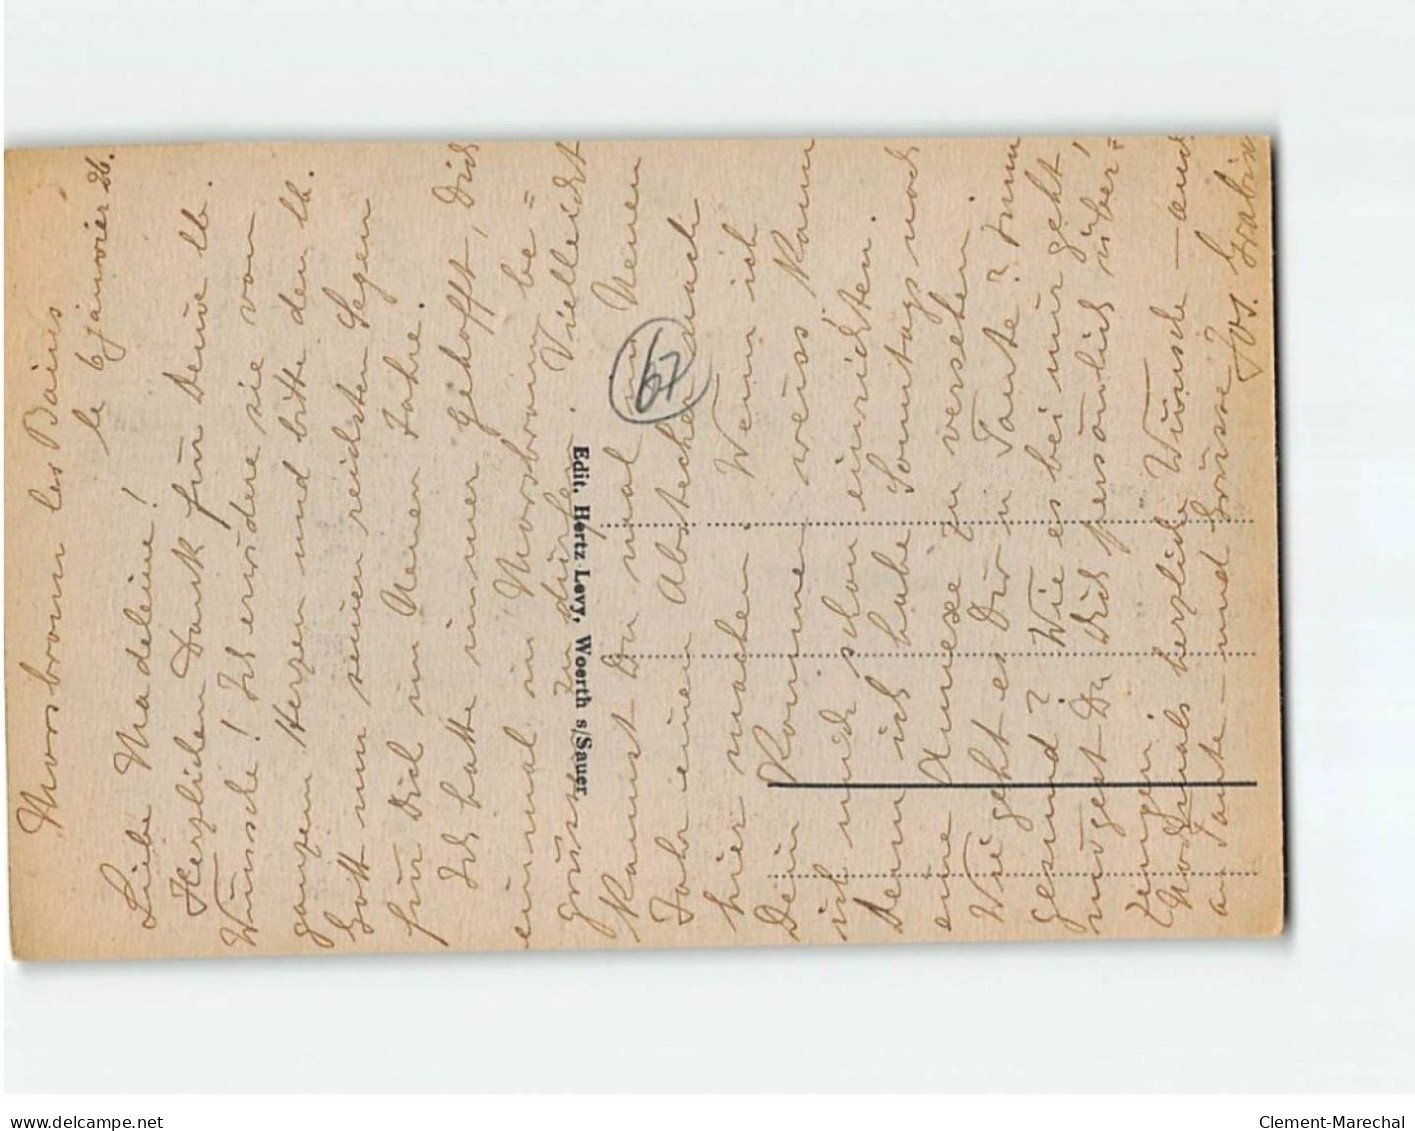 Morsbronn les Bains
le 6 janvier 26.
Liebe Madeleine!
Herzlichen Dank für Deine lb.
Wünsche! Ich erwidere sie von
ganzem Herzen und bitte den lb.
Gott um seinen reichsten Segen
für Dich im Neuen Jahre.
Ich hatte immer gehofft, Dich
einmal in Morsbronn be=
grüssen zu dürfen. Vielleicht
kannst Du mal im Neuen
Jahr einen Abstecher nach
hier machen. Wenn ich
Dein Kommen weiss kann
ich mich schon einrichten.
Denn ich habe Sonntags noch
eine Annexe zu versehen.
Wie geht es Dir u Tante? Immer
gesund? Wie es bei mir geht
mögest Du Dich persönlich über=
zeugen!
Nochmals herzliche Wünsche – auch
an Tante – und Grüsse Jos.
Edit. Hertz-Levy, Woerth s/Sauer
67
www.delcampe.net
Clement-Marechal